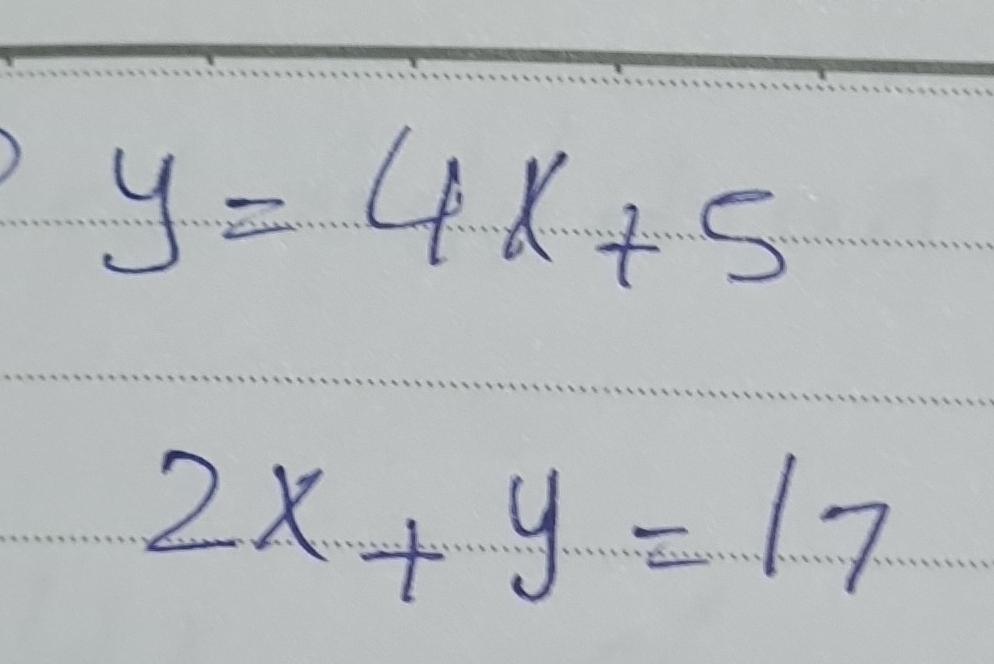 y = 4x + 5
2x + y = 17